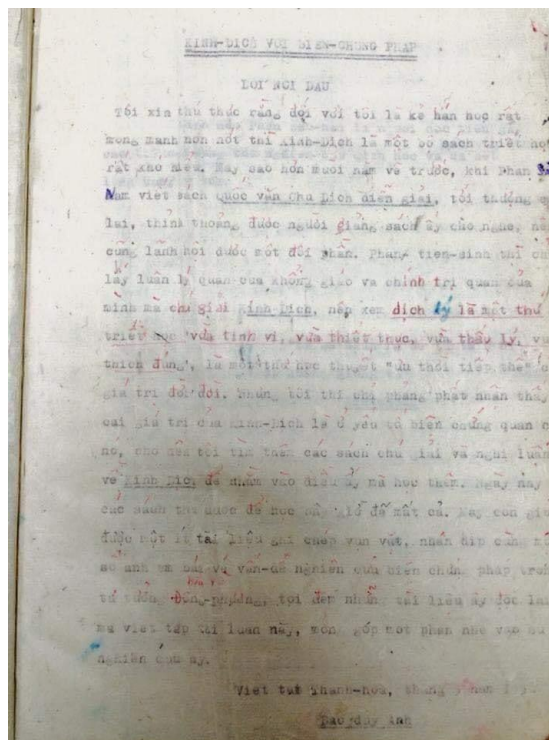 KINH-DỊCH VỚI BIỆN-CHỨNG PHÁP
LỜI NÓI ĐẦU
Tôi xin thú thực rằng đối với tôi là kẻ hán học rất
mong manh hôn nốt thì Kinh-Dịch là một bộ sách triết học
rất khó hiểu. May sao hơn mười năm về trước, khi Phan
Nam viết sách Quốc văn Chu Dịch diễn giải, tôi thường
lai, thỉnh thoảng được người giảng sách ấy cho nghe, nên
cũng lãnh hội được một đôi phần. Phan tiên-sinh thì chỉ
lấy luân lý quan của khổng giáo và chính trị quan của
mình mà chú giải Kinh-Dịch, nếp xem dịch lý là một thứ
triết học "vừa tinh vi, vừa thiết thực, vừa thấp lý,
thích đáng", là một thứ học thuyết "ưu thời tiếp thế"
giá trị đời đời. Nhưng tôi thì chỉ phảng phất nhận thấy
cái giá trị của Kinh-Dịch là ở yếu tố biện chứng quan
nó, cho nên tôi tìm thêm các sách chú giải và nghị luận
về Kinh Dịch để nhằm vào điều ấy mà học thêm. Ngày nay
các sách thu được để học bây giờ đã mất cả. May còn
được một ít tài liệu ghi chép vụn vặt, nhân dịp cùng
số anh em bàn về vấn-đề nghiên cứu biện chứng pháp
tư tưởng Đông-phương, tôi đem những tài liệu ấy đọc lại
mà viết tập tài luận này, mong góp một phần nhỏ vào
nghiên cứu ấy.
Viết tại Thanh-hoá, tháng năm
Đào duy Anh